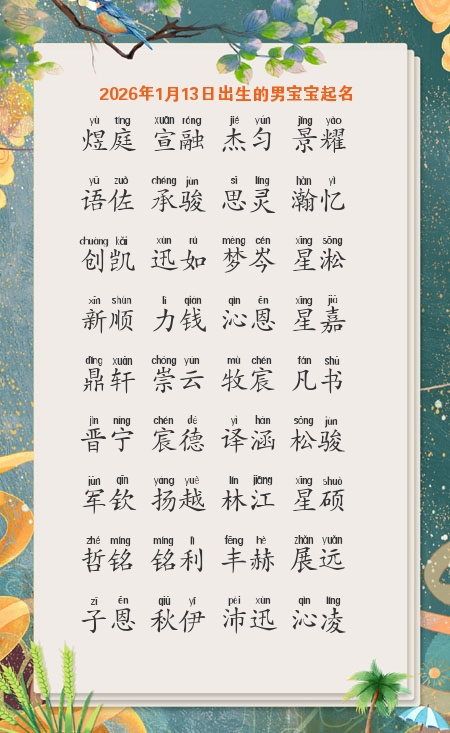 2026年1月13日出生的男宝宝起名
yù tíng xuān róng jié yún jǐng yào
煜庭 宣融 杰匀 景耀
yǔ zuǒ chéng jùn sī líng hàn yì
语佐 承骏 思灵 瀚忆
chuàng kǎi xùn rú mèng cén xīng sōng
创凯 迅如 梦岑 星淞
xīn shùn lì qián qìn ēn xīng jiā
新顺 力钱 沁恩 星嘉
dǐng xuān chóng yún mù chén fán shū
鼎轩 崇云 牧宸 凡书
jìn níng chén dé yì hán sōng jùn
晋宁 宸德 译涵 松骏
jūn qīn yáng yuè lín jiāng xīng shuò
军钦 扬越 林江 星硕
zhé míng míng lì fēng hè zhǎn yuǎn
哲铭 铭利 丰赫 展远
zǐ ēn qiū yī pèi xùn qìn líng
子恩 秋伊 沛迅 沁凌